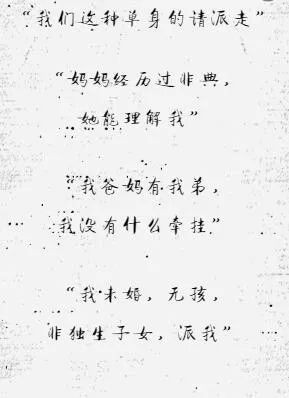 “我们这种单身的请派走”
“妈妈经历过非典，
她能理解我”
“我爸妈有我弟，
我没有什么牵挂”
“我未婚，无孩，
非独生子女，派我”